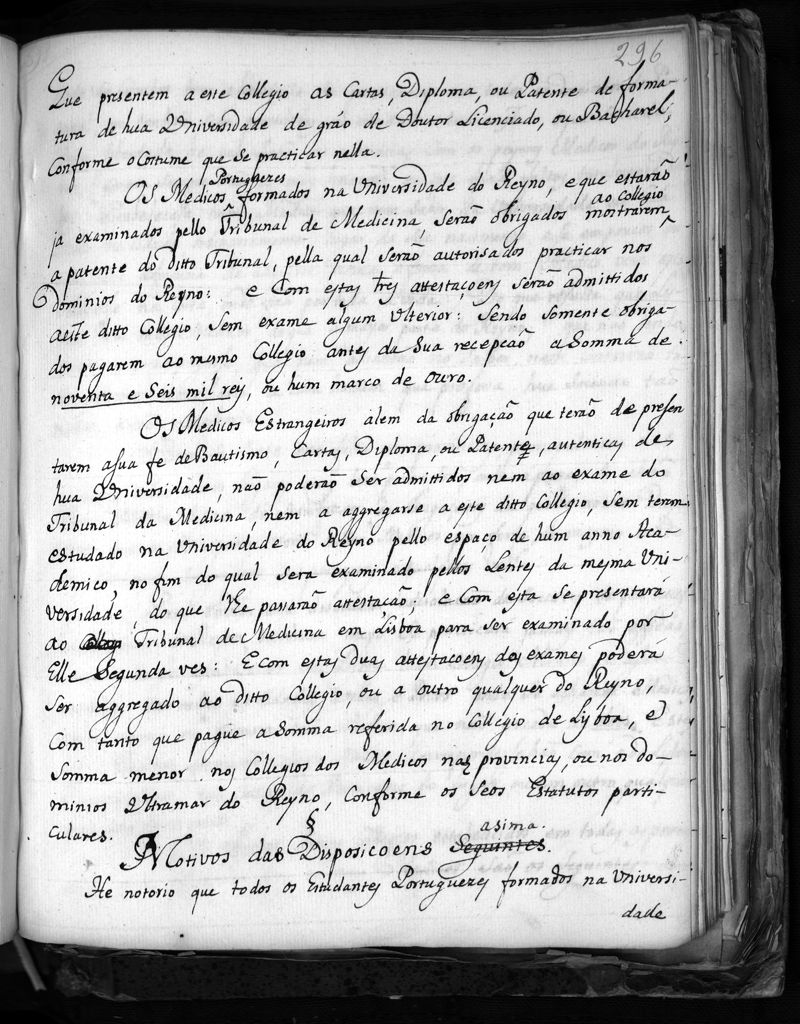 296
Que presentem a este Collegio as Cartas, Diploma, ou Patente de forma-
tura de hua Universidade de gráo de Doutor Licenciado, ou Bacharel,
Conforme o Costume que se practicar nella.
Portuguezes
Os Medicos formados na Universidade do Reyno, e que estaraõ
ao Collegio
ja examinados pello Tribunal de Medicina, seraõ obrigados mostrarem
a patente do ditto Tribunal, pella qual seraõ autorisados practicar nos
Dominios do Reyno: e Com estas tres attestaçoens seraõ admittidos
aeste ditto Collegio, sem exame algum Ulterior: Sendo somente obriga-
dos pagarem ao mesmo Collegio antes da Sua recepçaõ a Somma de
noventa e Seis mil reis, ou hum marco de ouro.
Os Medicos Estrangeiros alem da obrigaçaõ que teraõ de presen
tarem asua fe de Bautismo, Cartas, Diploma, ou Patente, autenticas de
hua Universidade, naõ poderaõ Ser admittidos nem ao exame do
Tribunal da Medicina, nem a aggregarse a este ditto Collegio, Sem terem
estudado na Universidade do Reyno pello espaço de hum anno Aca-
demico, no fim do qual sera examinado pellos Lentes da mesma Uni-
versidade, do que lhe passaraõ attestaçaõ; e Com esta se presentará
ao Tribunal de Medicina em Lisboa para ser examinado por
Elle Segunda ves: E com estas duas attestaçoens dos exames poderá
Ser aggregado ao ditto Collegio, ou a outro qualquer do Reyno,
Com tanto que pague a Somma referida no Collegio de Lisboa, e
Somma menor nos Collegios dos Medicos nas provincias, ou nos do-
minios Ultramar do Reyno, Conforme os Seos Estatutos parti-
culares.
§
asima.
Motivos das Disposicoens Seguintes.
He notorio que todos os Estudantes Portuguezes formados na Universi-
dade